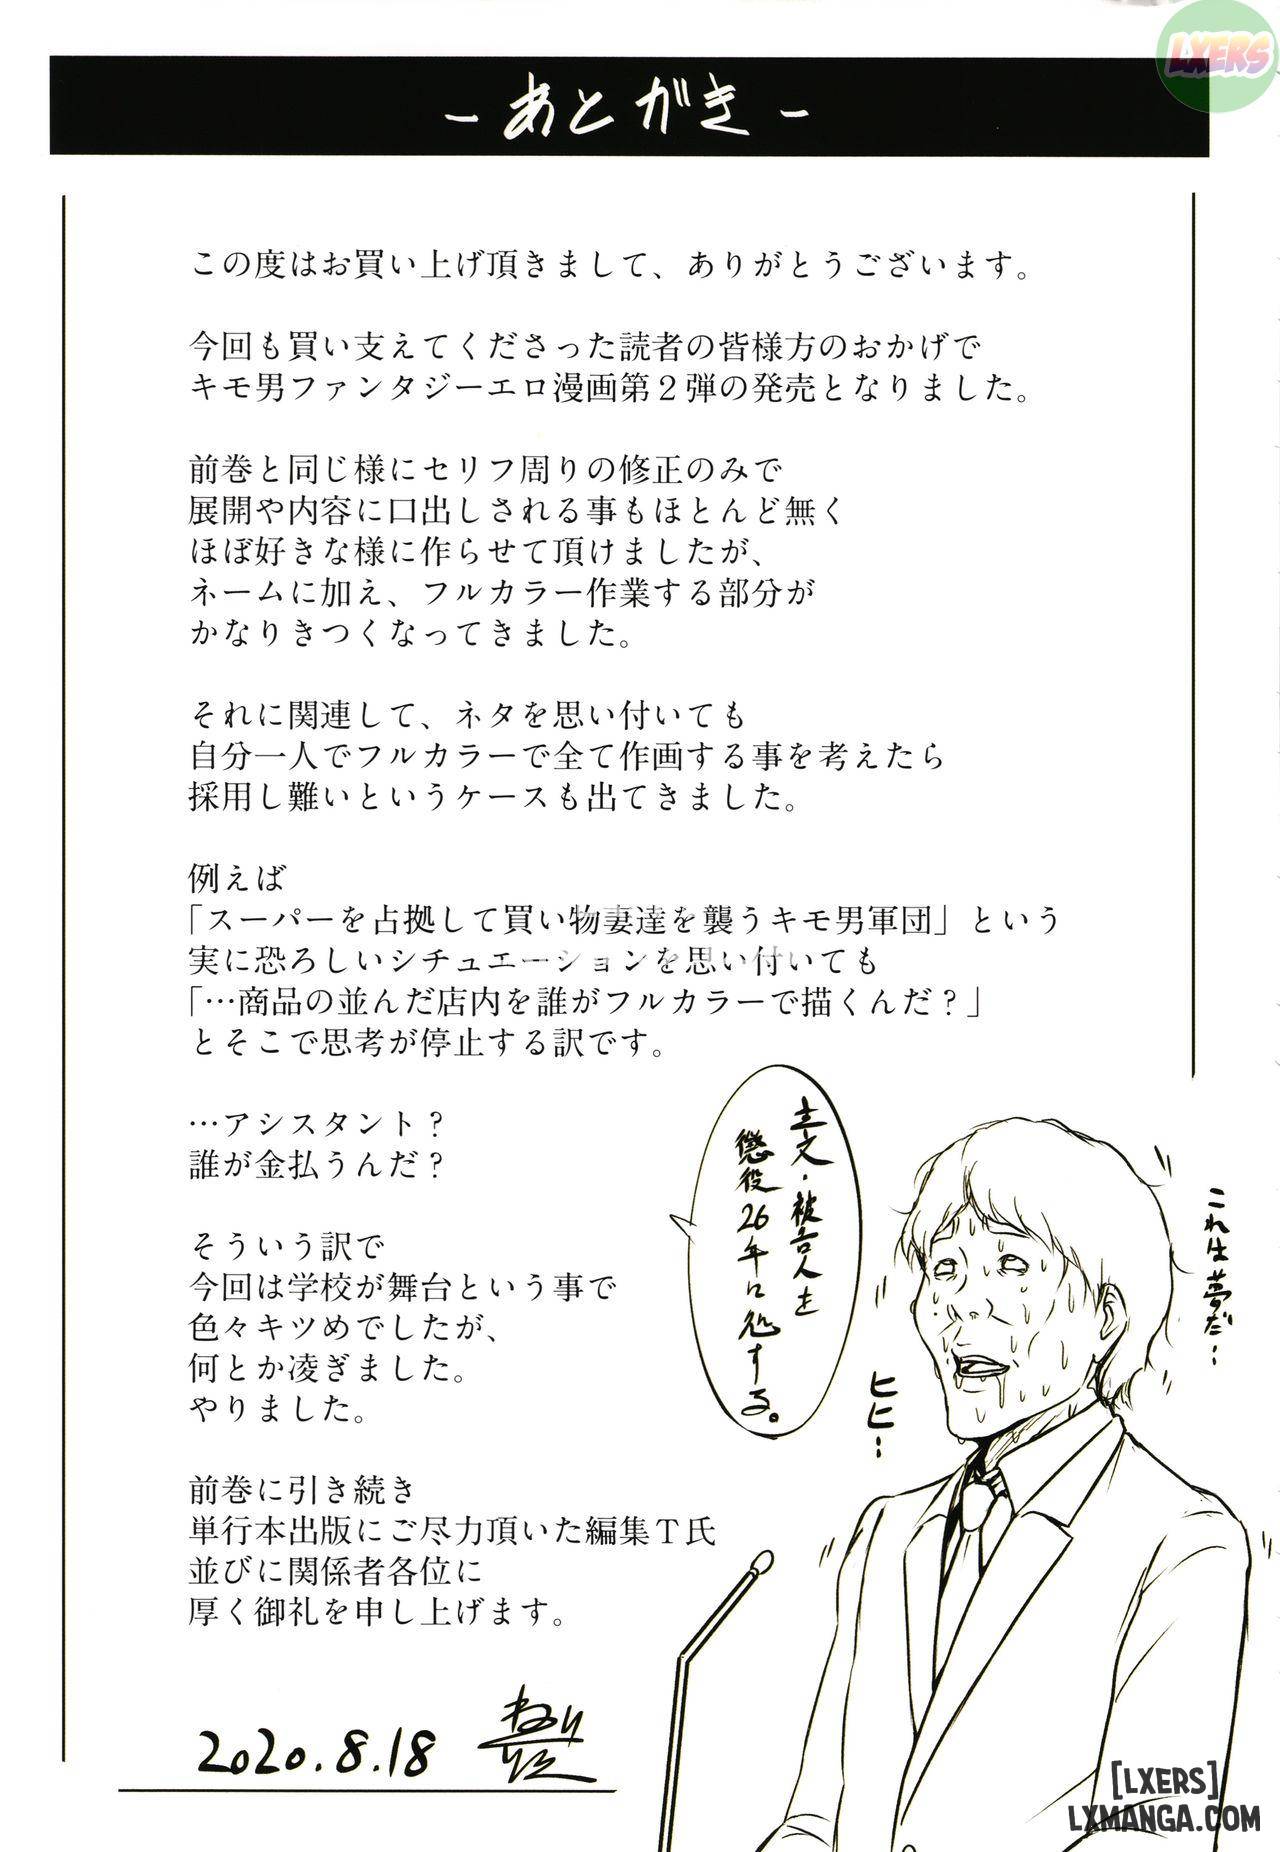 LXERS
- あとがき -
この度はお買い上げ頂きまして、ありがとうございます。
今回も買い支えてくださった読者の皆様方のおかげで
キモ男ファンタジーエロ漫画第２弾の発売となりました。
前巻と同じ様にセリフ周りの修正のみで
展開や内容に口出しされる事もほとんど無く
ほぼ好きな様に作らせて頂けましたが、
ネームに加え、フルカラー作業する部分が
かなりきつくなってきました。
それに関連して、ネタを思い付いても
自分一人でフルカラーで全て作画する事を考えたら
採用し難いというケースも出てきました。
例えば
「スーパーを占拠して買い物妻達を襲うキモ男軍団」という
実に恐ろしいシチュエーションを思い付いても
「…商品の並んだ店内を誰がフルカラーで描くんだ？」
とそこで思考が停止する訳です。
…アシスタント？
誰が金払うんだ？
そういう訳で
今回は学校が舞台という事で
色々キツめでしたが、
何とか凌ぎました。
やりました。
前巻に引き続き
単行本出版にご尽力頂いた編集Ｔ氏
並びに関係者各位に
厚く御礼を申し上げます。
2020.8.18
主文・被告人を
懲役26年に処する。
これは夢だ…
ヒヒ…
[LXERS]
LXMANGA.COM